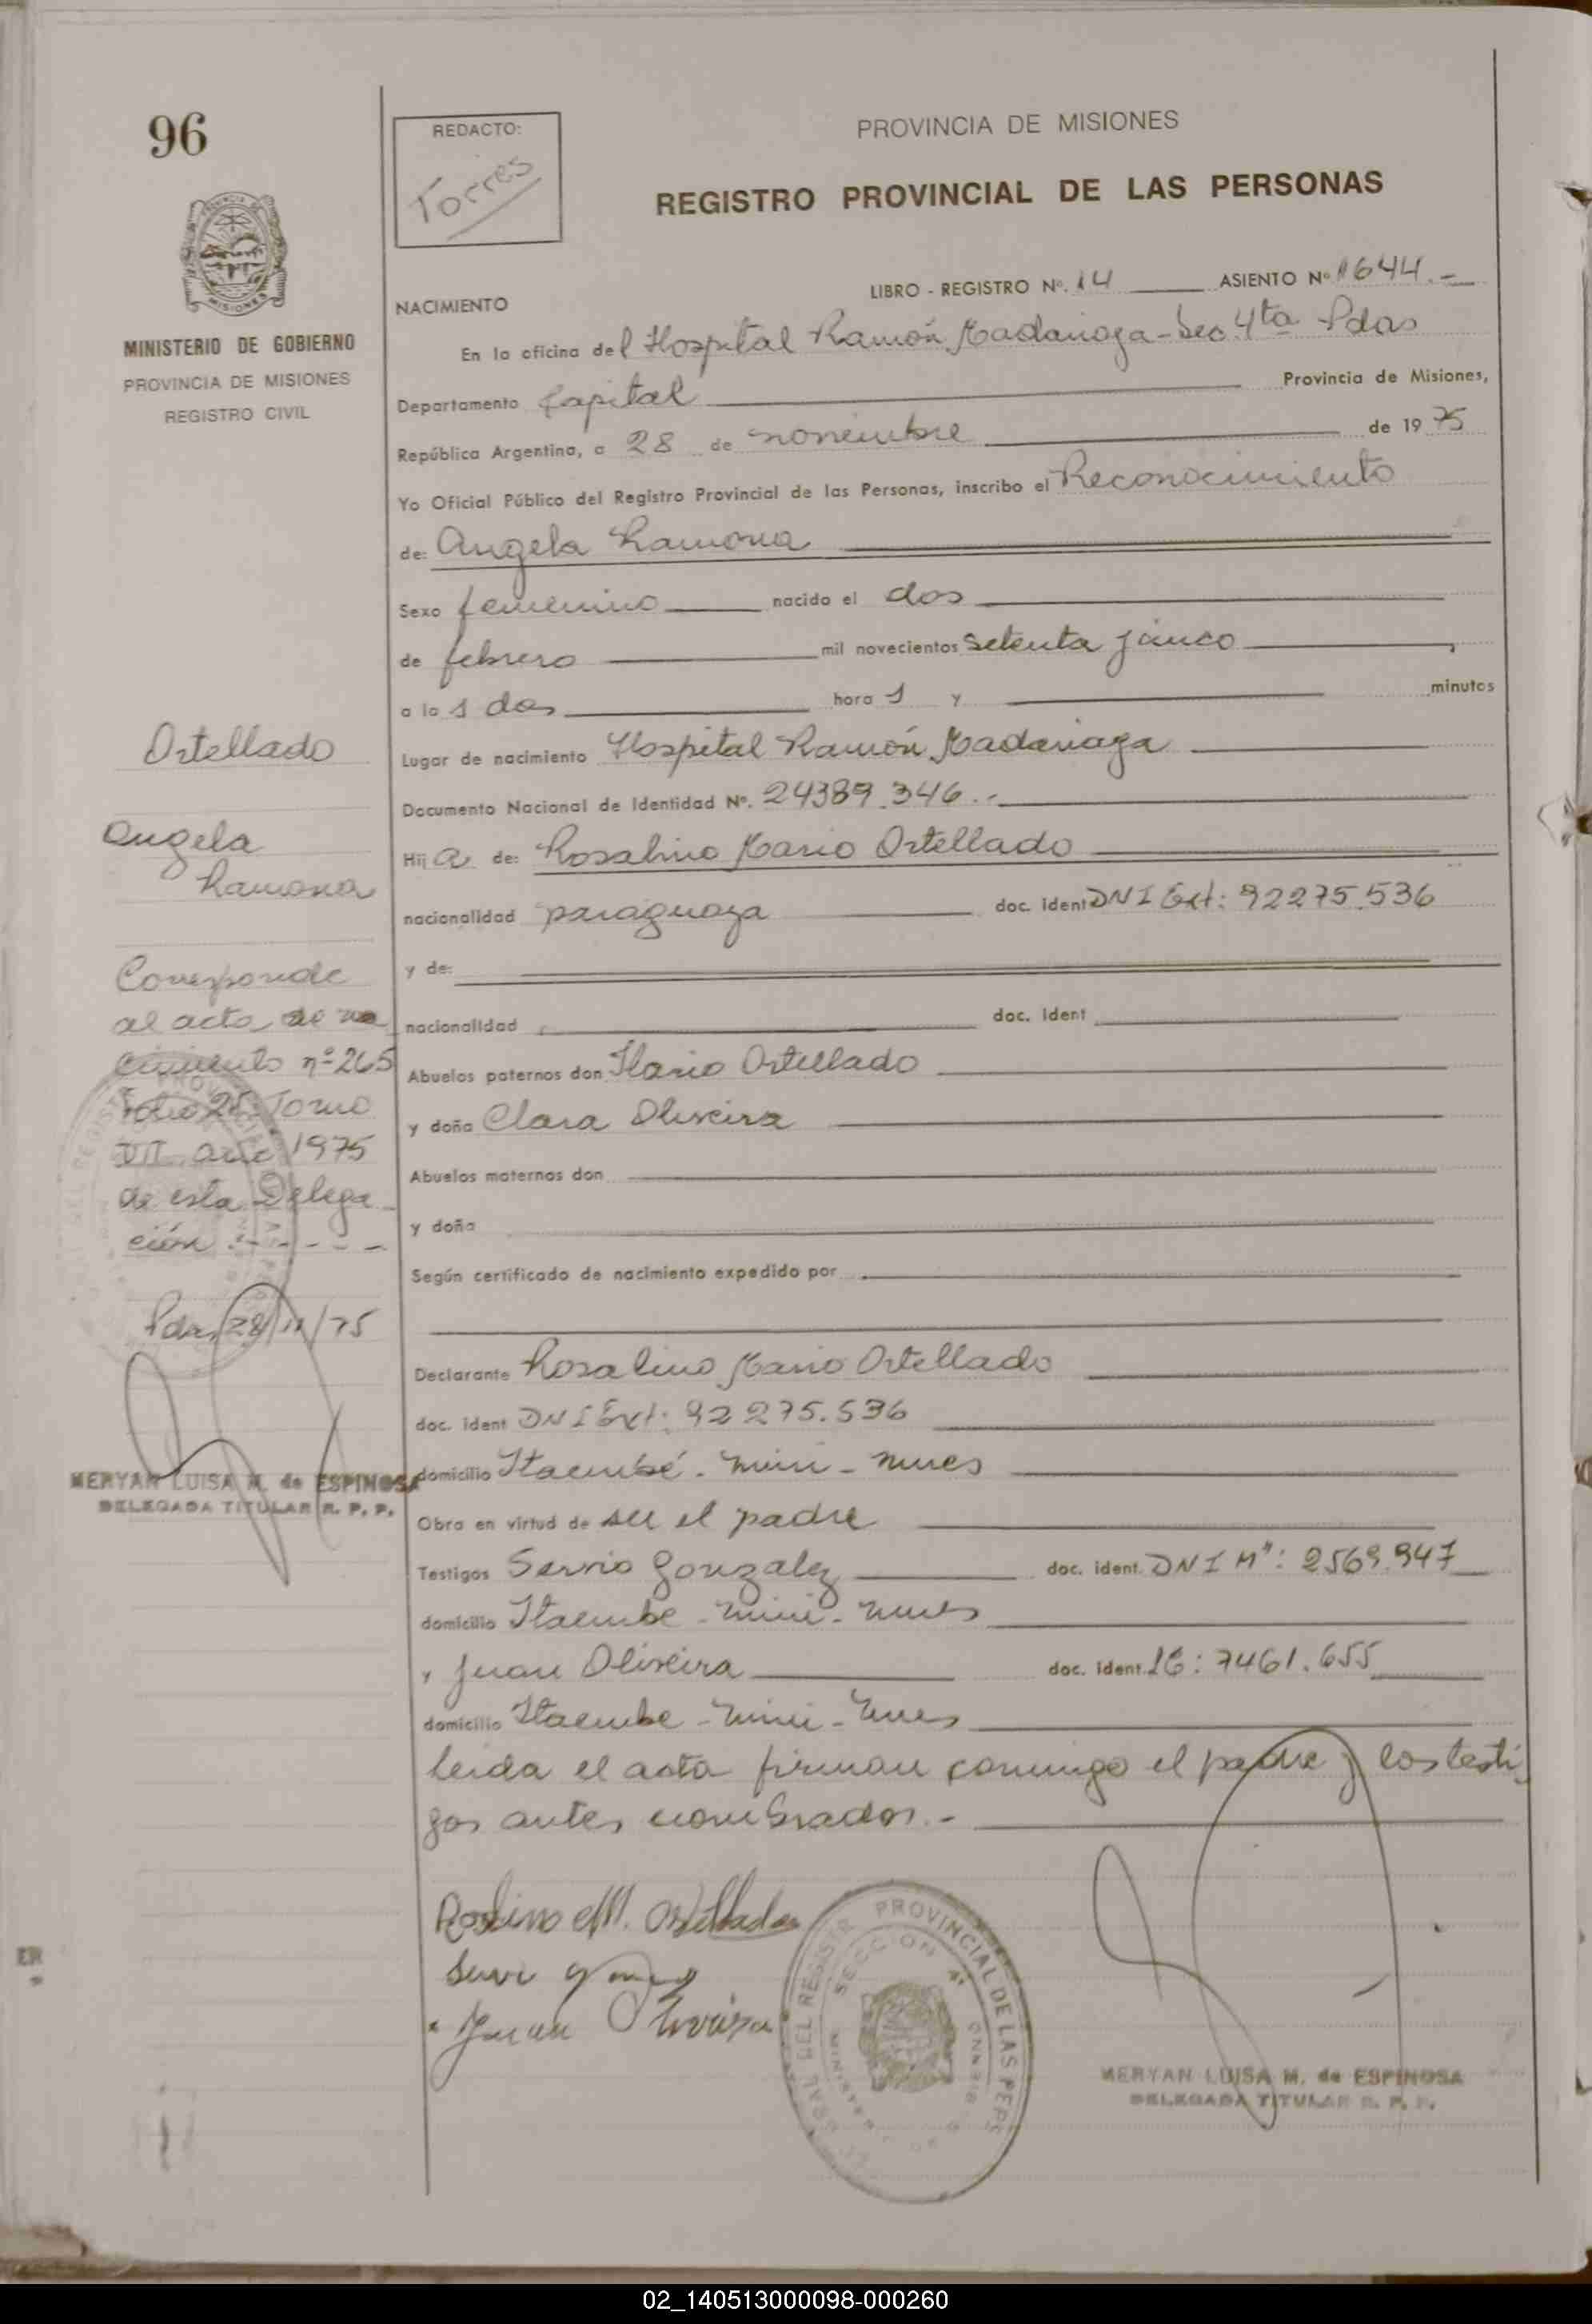 96
REDACTO:
Torres
PROVINCIA DE MISIONES
REGISTRO PROVINCIAL DE LAS PERSONAS
MISIONES
MINISTERIO DE GOBIERNO
PROVINCIA DE MISIONES
REGISTRO CIVIL
NACIMIENTO
LIBRO - REGISTRO Nº. 14 ASIENTO Nº 1644.-
En la oficina del Hospital Ramón Madariaga - Sec. 4ta Pdas
Departamento Capital Provincia de Misiones,
República Argentina, a 28 de noviembre de 1975
Yo Oficial Público del Registro Provincial de las Personas, inscribo el Reconocimiento
de: Angela Ramona
Sexo femenino nacido el dos
de febrero mil novecientos setenta y cinco,
a las dos hora s y minutos
Lugar de nacimiento Hospital Ramón Madariaga
Documento Nacional de Identidad Nº. 24389.346.-
Hija de: Rosalino Mario Ortellado
nacionalidad paraguaya doc. ident DNI Ext: 92275.536
y de:
nacionalidad doc. ident
Abuelos paternos don Ilario Ortellado
y doña Clara Oliveira
Abuelos maternos don
y doña
Según certificado de nacimiento expedido por
Declarante Rosalino Mario Ortellado
doc. ident DNI Ext: 92275.536
domicilio Itaembé - mini - mnes
Obra en virtud de ser el padre
Testigos Servio Gonzalez doc. ident. DNI Mº: 2569.947
domicilio Itaembe - mini - mnes
y Juan Oliveira doc. ident. LE: 7461.655
domicilio Itaembe - mini - mnes
leida el acta firman conmigo el padre y los testi
gos antes nombrados.-
Ortellado
Angela
Ramona
Corresponde
al acta de na
cimiento nº 265
folio 25 Tomo
VII año 1975
de esta Delega
ción.-----
Pdas, 28/11/75
MERYAN LUISA M. de ESPINOSA
DELEGADA TITULAR R. P. P.
Rosalino M. Ortellado
Juan Oliveira
PROVINCIAL DE LAS PERS
SECCION 4ª
MERYAN LUISA M. de ESPINOSA
DELEGADA TITULAR R. P. P.
02_140513000098-000260